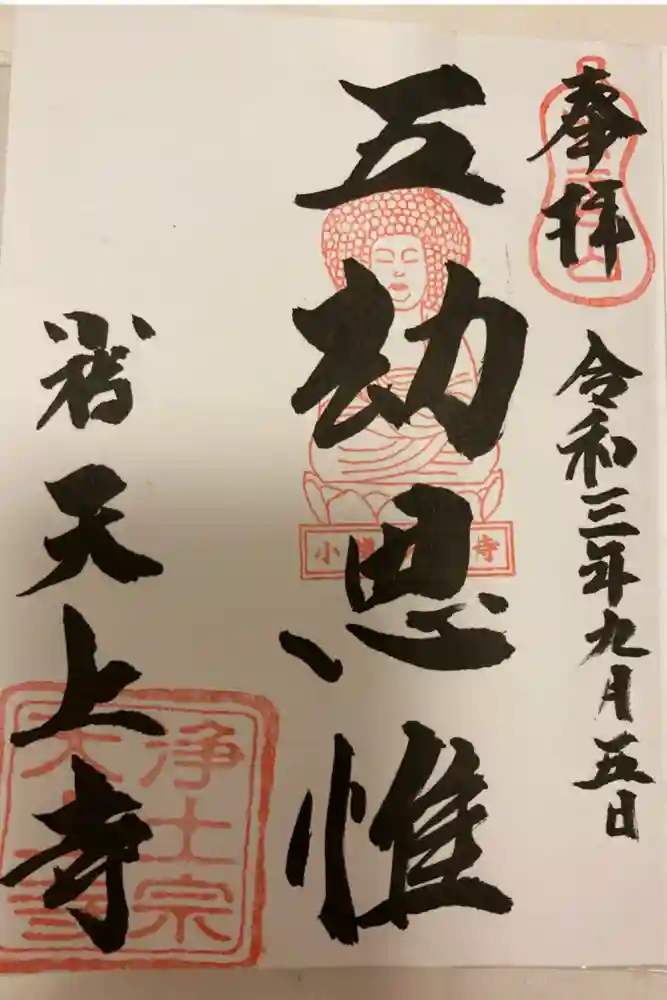 奉拝
令和三年九月五日
五劫思惟
天上寺
小
寺
浄土宗
天上寺